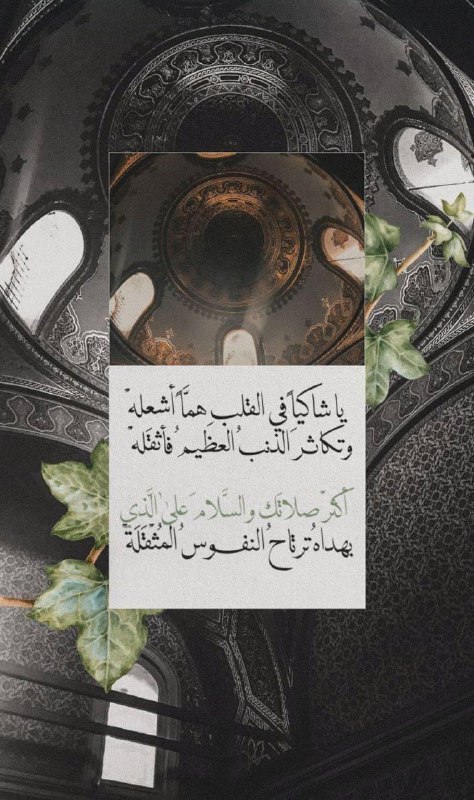 يا شاكياً في القلب همَّاً أشعلهْ
وتكاثر َ الذنب ُ العظيم ُ فأثقلهْ
أكثرْ صلاتك والسَّلام َ على ٰ الَّذي
بهداه ُ ترتاح ُ النفوس ُ المُثْقَلَةْ